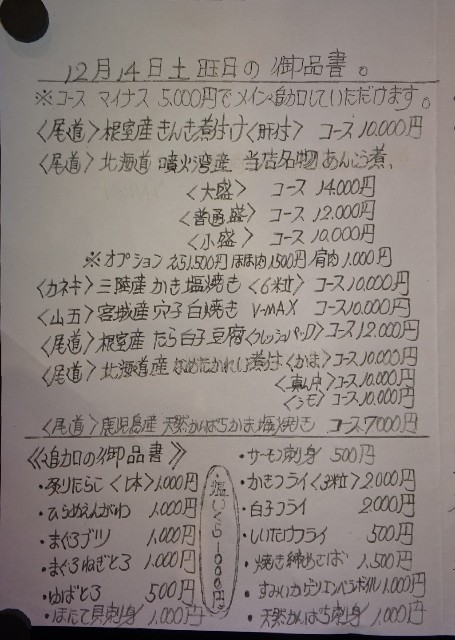 12月14日土曜日の御品書。
※コース マイナス 5.000円でメイン追加していただけます。
〈尾道〉根室産きんき煮付け〈肝付〉 コース10.000円
〈尾道〉北海道 噴火湾産 当店名物 あんこう煮、
〈大盛〉 コース 14.000円
〈普通盛〉 コース 12.000円
〈小盛〉 コース 10.000円
※オプション えら1.500円 ほほ肉1500円 肩肉1.000円
〈カネキ〉三陸産 かき塩焼き〈6粒〉コース10.000円
〈山五〉宮城産 穴子 白焼き V-MAX コース10.000円
〈尾道〉根室産 たら白子豆腐〈フレッシュパック〉コース12.000円
〈尾道〉北海道産 なめたかれい煮付〈かま〉コース10.000円
〈真ん中〉コース10.000円
コース10.000円
〈尾道〉鹿児島産 天然かんぱちかま塩焼き コース7000円
《追加の御品書》
・炙りたらこ〈1本〉1.000円
・ひらめえんがわ 1.000円
・まぐろブツ 1.000円
・まぐろねぎとろ 1.000円
・ゆばとろ 500円
・ほたて貝刺身 1.000円
塩いくら1000円
・サーモン刺身 500円
・かきフライ〈3粒〉2.000円
・白子フライ 2.000円
・しいたけフライ 500円
・焼き締めさば 1.500円
・すみいかゲソエンペラボイル1.000円
・天然かんぱち刺身 1.000円